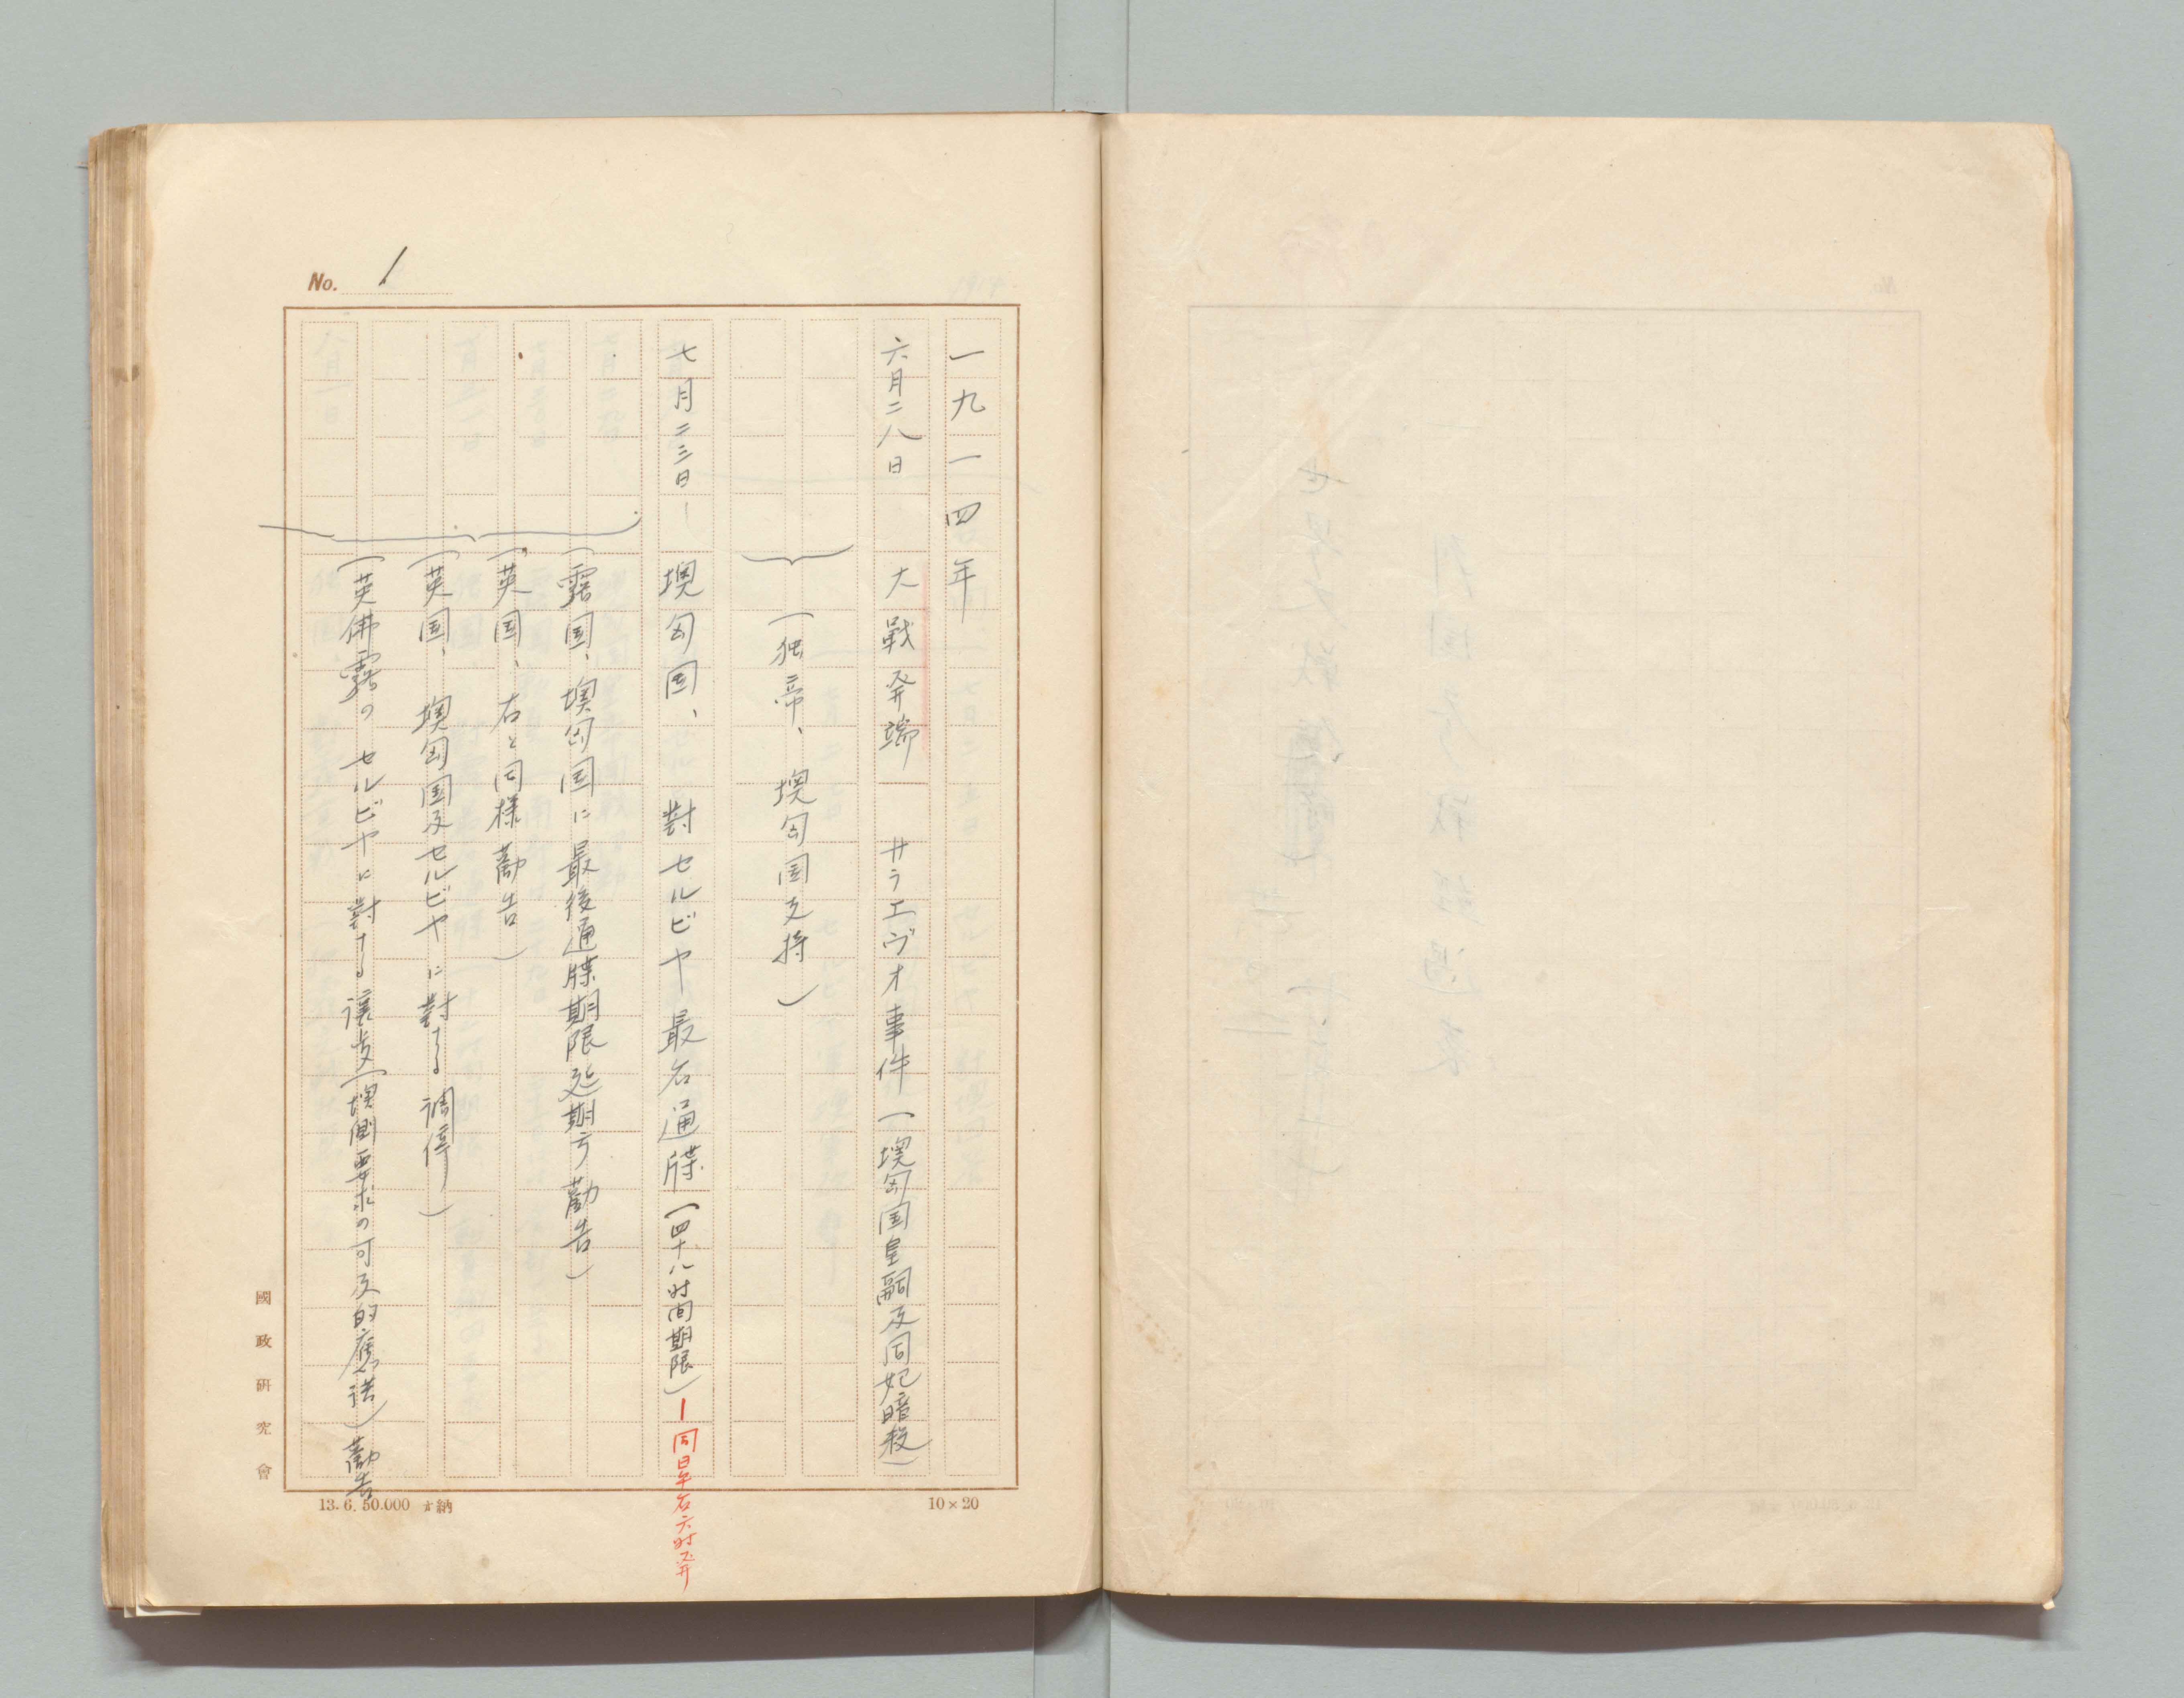 No. 1
一九一四年
六月二八日 大戰発端 サラエヴオ事件(墺匈国皇嗣及同妃暗殺)
(独帝、墺匈国支持)
七月二三日— 墺匈国、對セルビヤ最后通牒(四十八时间期限)—同日午后六时発
(露国、墺匈国に最後通牒期限延期方勸告)
(英国、右と同様勸告)
(英国、墺匈国及セルビヤに對する調停)
(英佛露のセルビヤに對する讓歩(墺側要求の可及的應諾)勸告
國政研究會
13.6.50.000 納
10×20